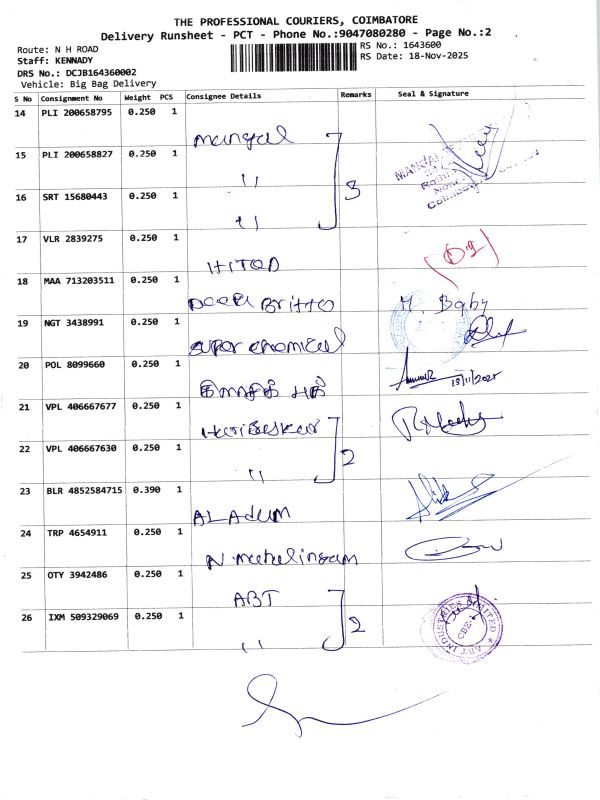 THE PROFESSIONAL COURIERS, COIMBATORE
Delivery Runsheet - PCT - Phone No.:9047080280 - Page No.:2
Route: N H ROAD
RS No.: 1643600
Staff: KENNADY
RS Date: 18-Nov-2025
DRS No.: DCJB164360002
Vehicle: Big Bag Delivery
S No Consignment No Weight PCS Consignee Details Remarks Seal & Signature
14 PLI 200658795 0.250 1 Mangal
15 PLI 200658827 0.250 1 " 3
16 SRT 15680443 0.250 1 "
17 VLR 2839275 0.250 1
18 MAA 713203511 0.250 1 Britto M. Baby
19 NGT 3438991 0.250 1 super chemical
20 POL 8099660 0.250 1 18/11/2025
21 VPL 406667677 0.250 1
22 VPL 406667630 0.250 1 " 2
23 BLR 4852584715 0.390 1
24 TRP 4654911 0.250 1
25 OTY 3942486 0.250 1 ABT
26 IXM 509329069 0.250 1 " 2
ABT INDUSTRIES LIMITED
CBE-1